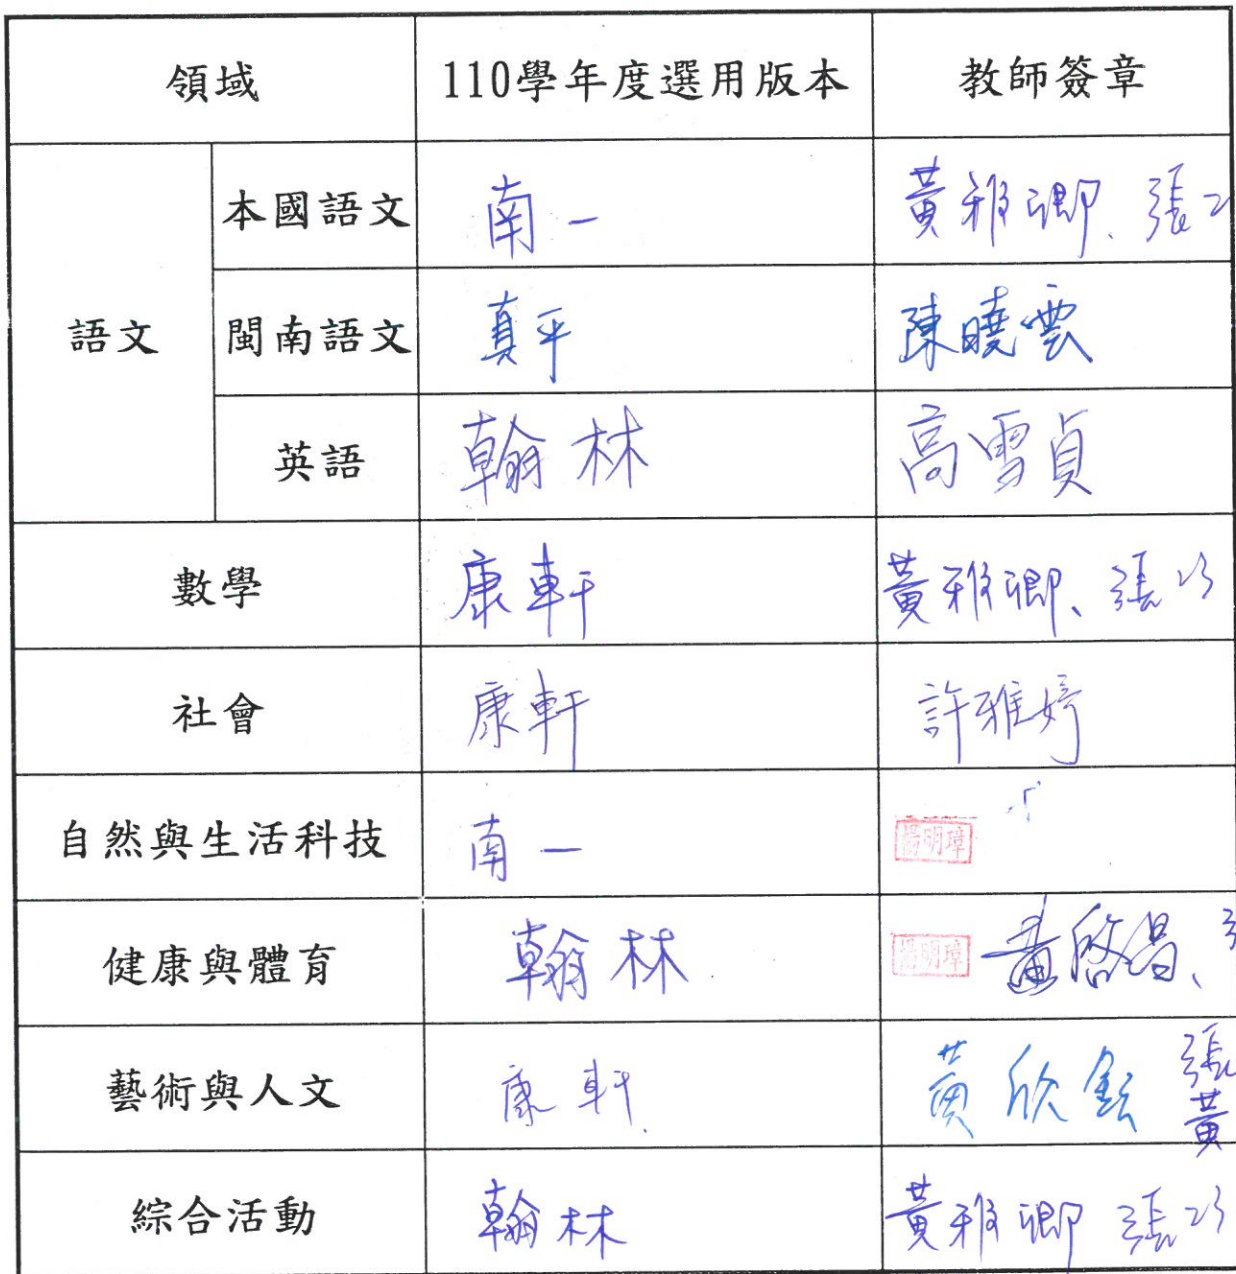 領域 110學年度選用版本 教師簽章
語文 本國語文 南一 黃雅卿、張
閩南語文 真平 陳曉雲
英語 翰林 高雪貞
數學 康軒 黃雅卿、張
社會 康軒 許雅婷
自然與生活科技 南一 楊明璋
健康與體育 翰林 楊明璋 啓昌、
藝術與人文 康軒 黃欣 張
黃
綜合活動 翰林 黃雅卿 張